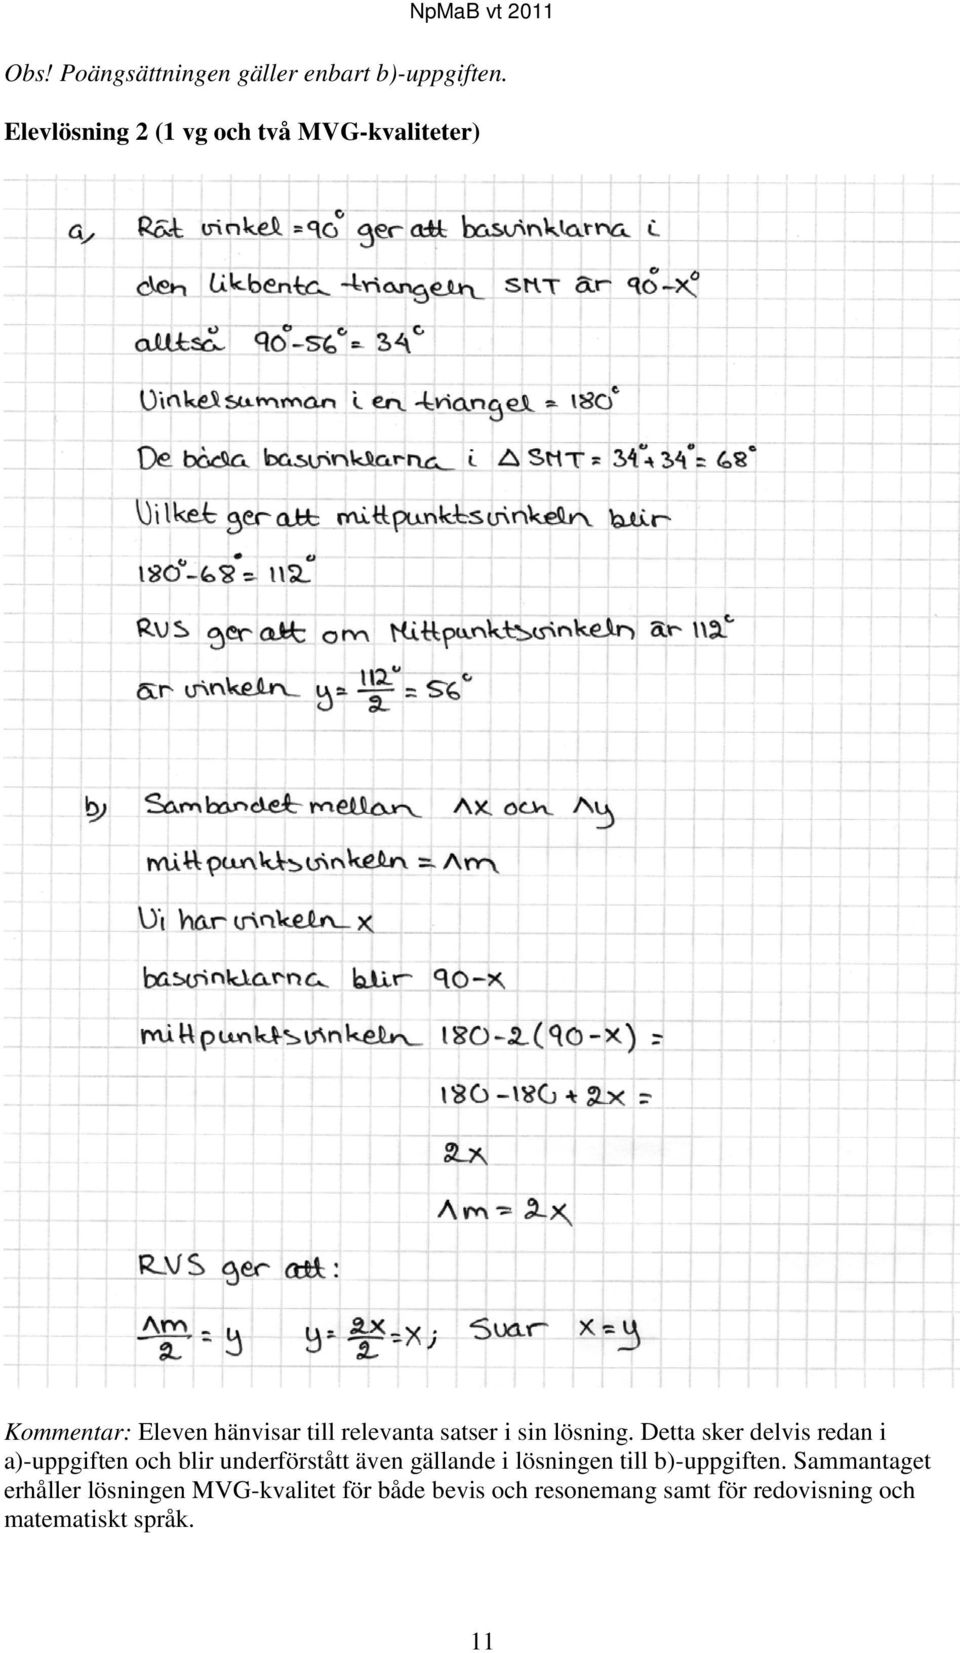 NpMaB vt 2011
Obs! Poängsättningen gäller enbart b)-uppgiften.
Elevlösning 2 (1 vg och två MVG-kvaliteter)
a, Rät vinkel = 90° ger att basvinklarna i
den likbenta triangeln SMT är 90°-x°
alltså 90°-56° = 34°
Vinkelsumman i en triangel = 180°
De båda basvinklarna i △ SMT = 34°+34° = 68°
Vilket ger att mittpunktsvinkeln blir
180°-68° = 112°
RVS ger att om Mittpunktsvinkeln är 112°
är vinkeln y = 112°/2 = 56°
b, Sambandet mellan ∧x och ∧y
mittpunktsvinkeln = ∧m
Vi har vinkeln x
basvinklarna blir 90-x
mittpunktsvinkeln 180-2(90-x) =
180-180+2x =
2x
∧m = 2x
RVS ger att:
∧m/2 = y y = 2x/2 = x; Svar x = y
Kommentar: Eleven hänvisar till relevanta satser i sin lösning. Detta sker delvis redan i
a)-uppgiften och blir underförstått även gällande i lösningen till b)-uppgiften. Sammantaget
erhåller lösningen MVG-kvalitet för både bevis och resonemang samt för redovisning och
matematiskt språk.
11